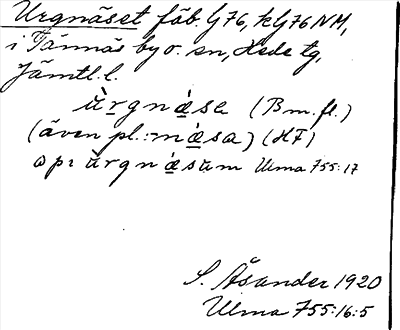 Urgnäset fäb. G76, kG76NM,
i Tännäs by o. sn, Hede tg,
Jämtl. l.
ùrgnæ̀sa (Bm. fl.)
(även pl.: mæ̀sa) (HF)
api ùrgnæ̀sum Ulma 755:17
S. Åsander 1920
Ulma 755:16:5